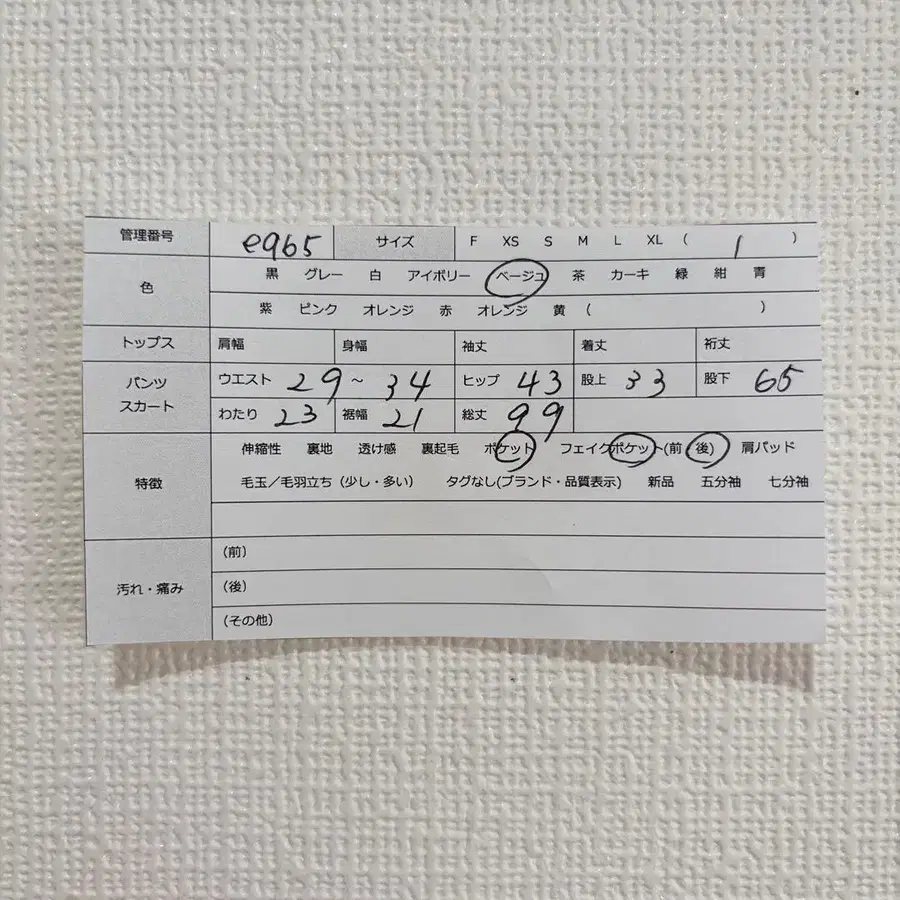 管理番号 e965 サイズ F XS S M L XL ( 1 )
色 黒 グレー 白 アイボリー ベージュ 茶 カーキ 緑 紺 青
紫 ピンク オレンジ 赤 オレンジ 黄 ( )
トップス 肩幅 身幅 袖丈 着丈 裄丈
パンツ スカート ウエスト 29 ~ 34 ヒップ 43 股上 33 股下 65
わたり 23 裾幅 21 総丈 99
特徴 伸縮性 裏地 透け感 裏起毛 ポケット フェイクポケット(前 後) 肩パッド
毛玉/毛羽立ち(少し・多い) タグなし(ブランド・品質表示) 新品 五分袖 七分袖
汚れ・痛み (前)
(後)
(その他)